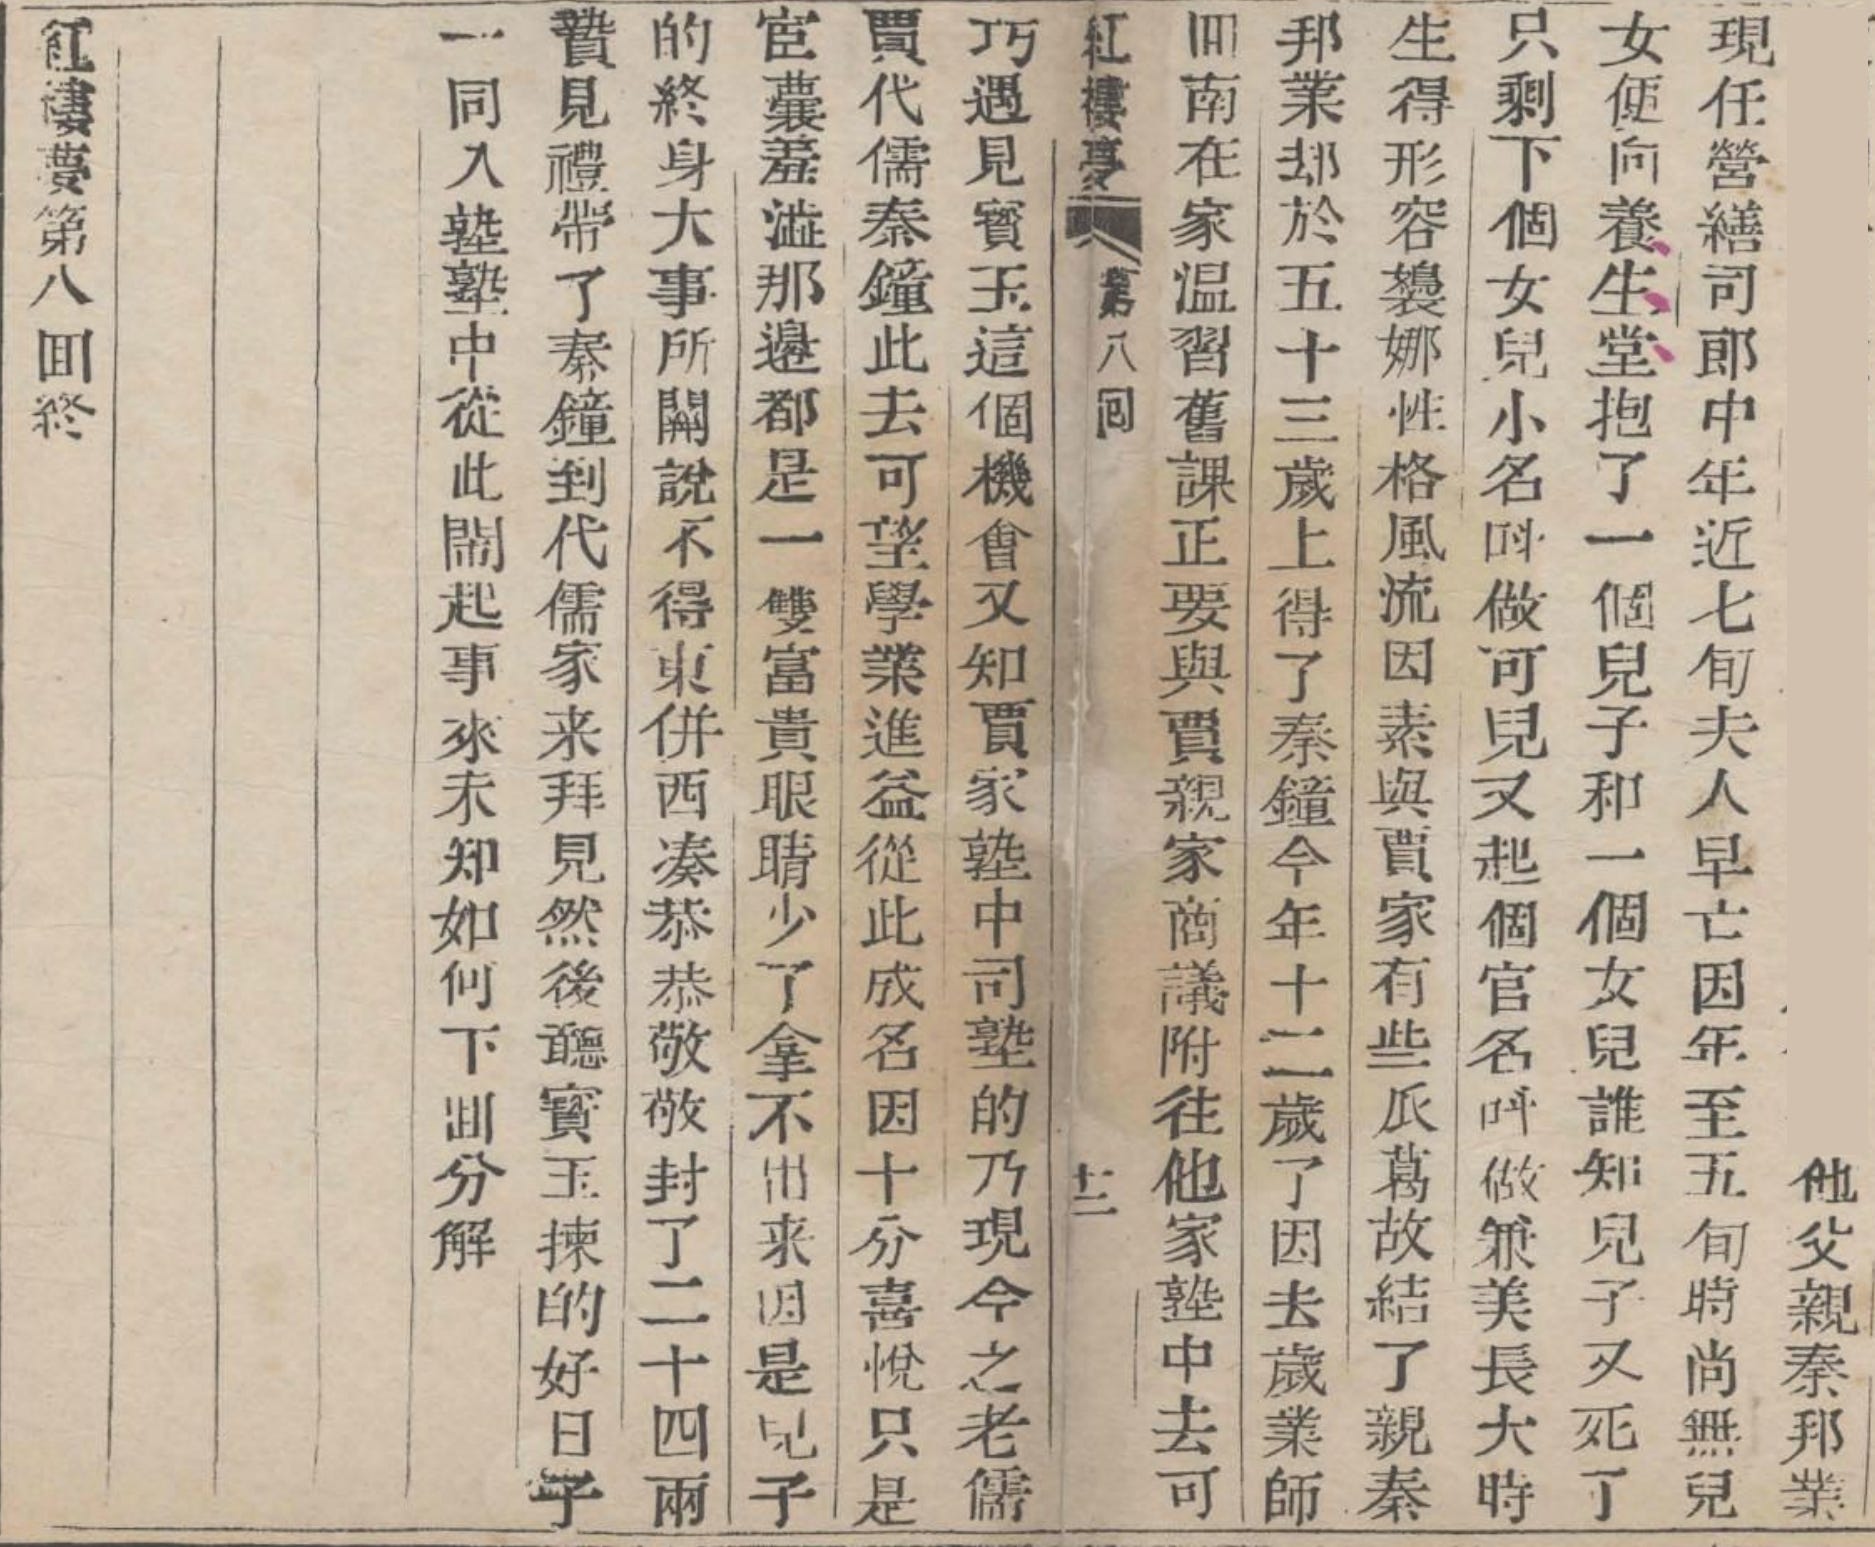 他父親秦邦業
現任營繕司郎中年近七旬夫人早亡因年至五旬時尚無兒
女便向養生堂抱了一個兒子和一個女兒誰知兒子又死了
只剩下個女兒小名叫做可兒又起個官名叫做兼美長大時
生得形容嫋娜性格風流因素與賈家有些瓜葛故結了親秦
邦業却於五十三歲上得了秦鐘今年十二歲了因去歲業師
回南在家温習舊課正要與賈親家商議附往他家塾中去可
紅樓夢 第八回 十二
巧遇見寳玉這個機會又知賈家塾中司塾的乃現今之老儒
賈代儒秦鐘此去可望學業進益從此成名因十分喜悅只是
宦囊羞澁那邊都是一雙富貴眼睛少了拿不出来因是兒子
的終身大事所關說不得東併西凑恭恭敬敬封了二十四兩
贄見禮帶了秦鐘到代儒家来拜見然後聽寳玉揀的好日子
一同入塾塾中從此鬧起事來未知如何下回分解
紅樓夢第八回終